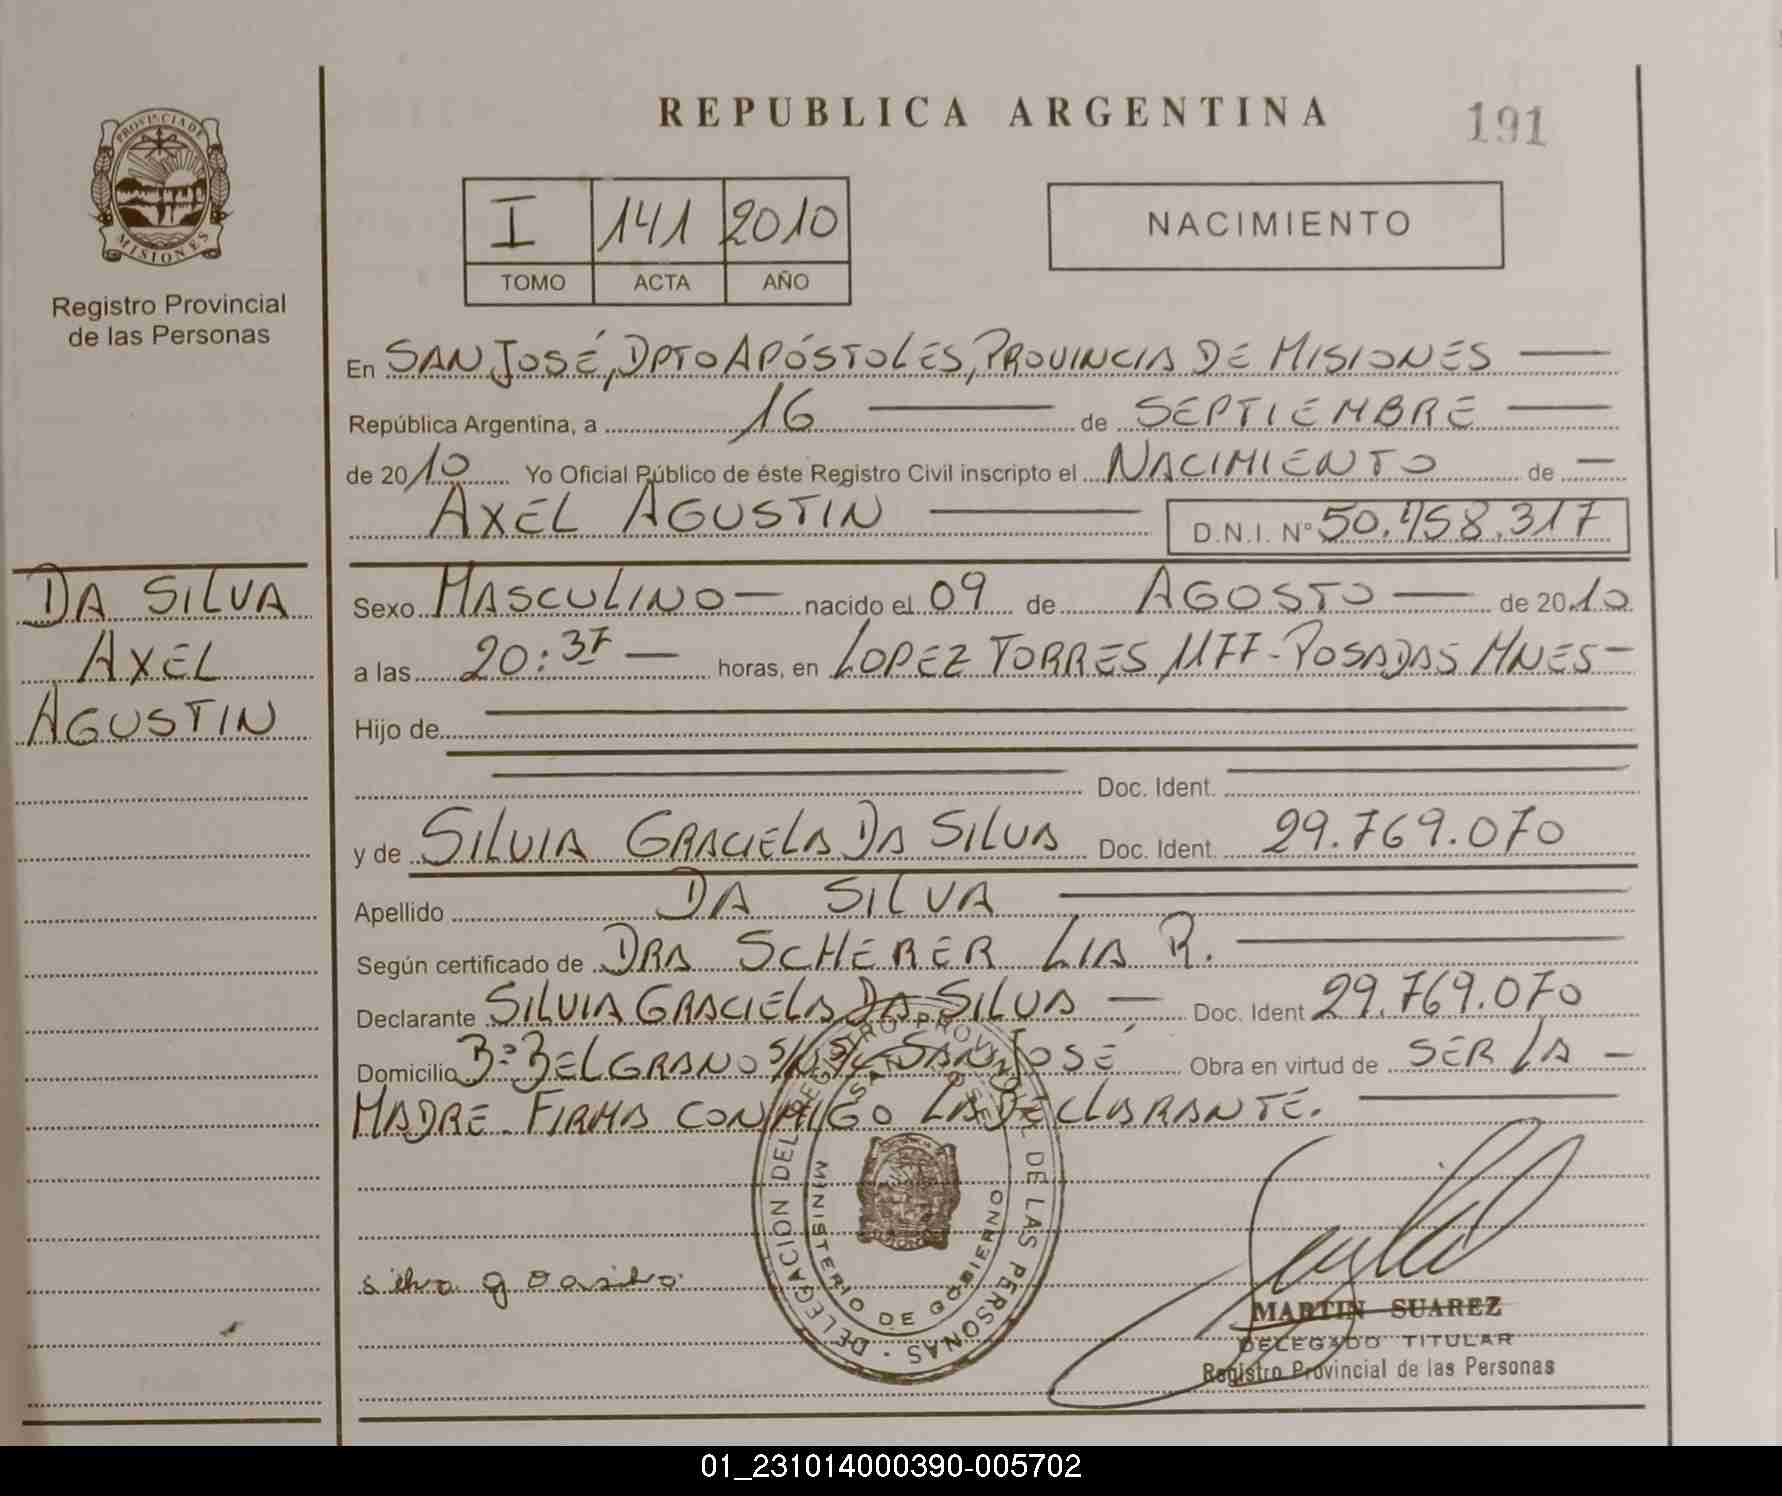 REPUBLICA ARGENTINA
191
PROVINCIA DE
MISIONES
Registro Provincial
de las Personas
I 141 2010
TOMO ACTA AÑO
NACIMIENTO
En SAN JOSÉ, DPTO APÓSTOLES, PROVINCIA DE MISIONES
República Argentina, a 16 de SEPTIEMBRE
de 2010 Yo Oficial Público de éste Registro Civil inscripto el NACIMIENTO de
AXEL AGUSTIN D.N.I. Nº 50.458.317
DA SILVA
AXEL
AGUSTIN
Sexo MASCULINO nacido el 09 de AGOSTO de 2010
a las 20:37 horas, en LOPEZ TORRES 1177 - POSADAS MNES
Hijo de
Doc. Ident.
y de SILVIA GRACIELA DA SILVA Doc. Ident. 29.769.070
Apellido DA SILVA
Según certificado de DRA SCHERER LIA R.
Declarante SILVIA GRACIELA DA SILVA Doc. Ident 29.769.070
Domicilio Bº BELGRANO S/Nº SAN JOSÉ Obra en virtud de SER LA
MADRE. FIRMA CONMIGO LA DECLARANTE.
DELEGACION DEL REGISTRO PROVINCIAL DE LAS PERSONAS
SAN JOSE
MINISTERIO DE GOBIERNO
MARTIN SUAREZ
DELEGADO TITULAR
Registro Provincial de las Personas
01_231014000390-005702